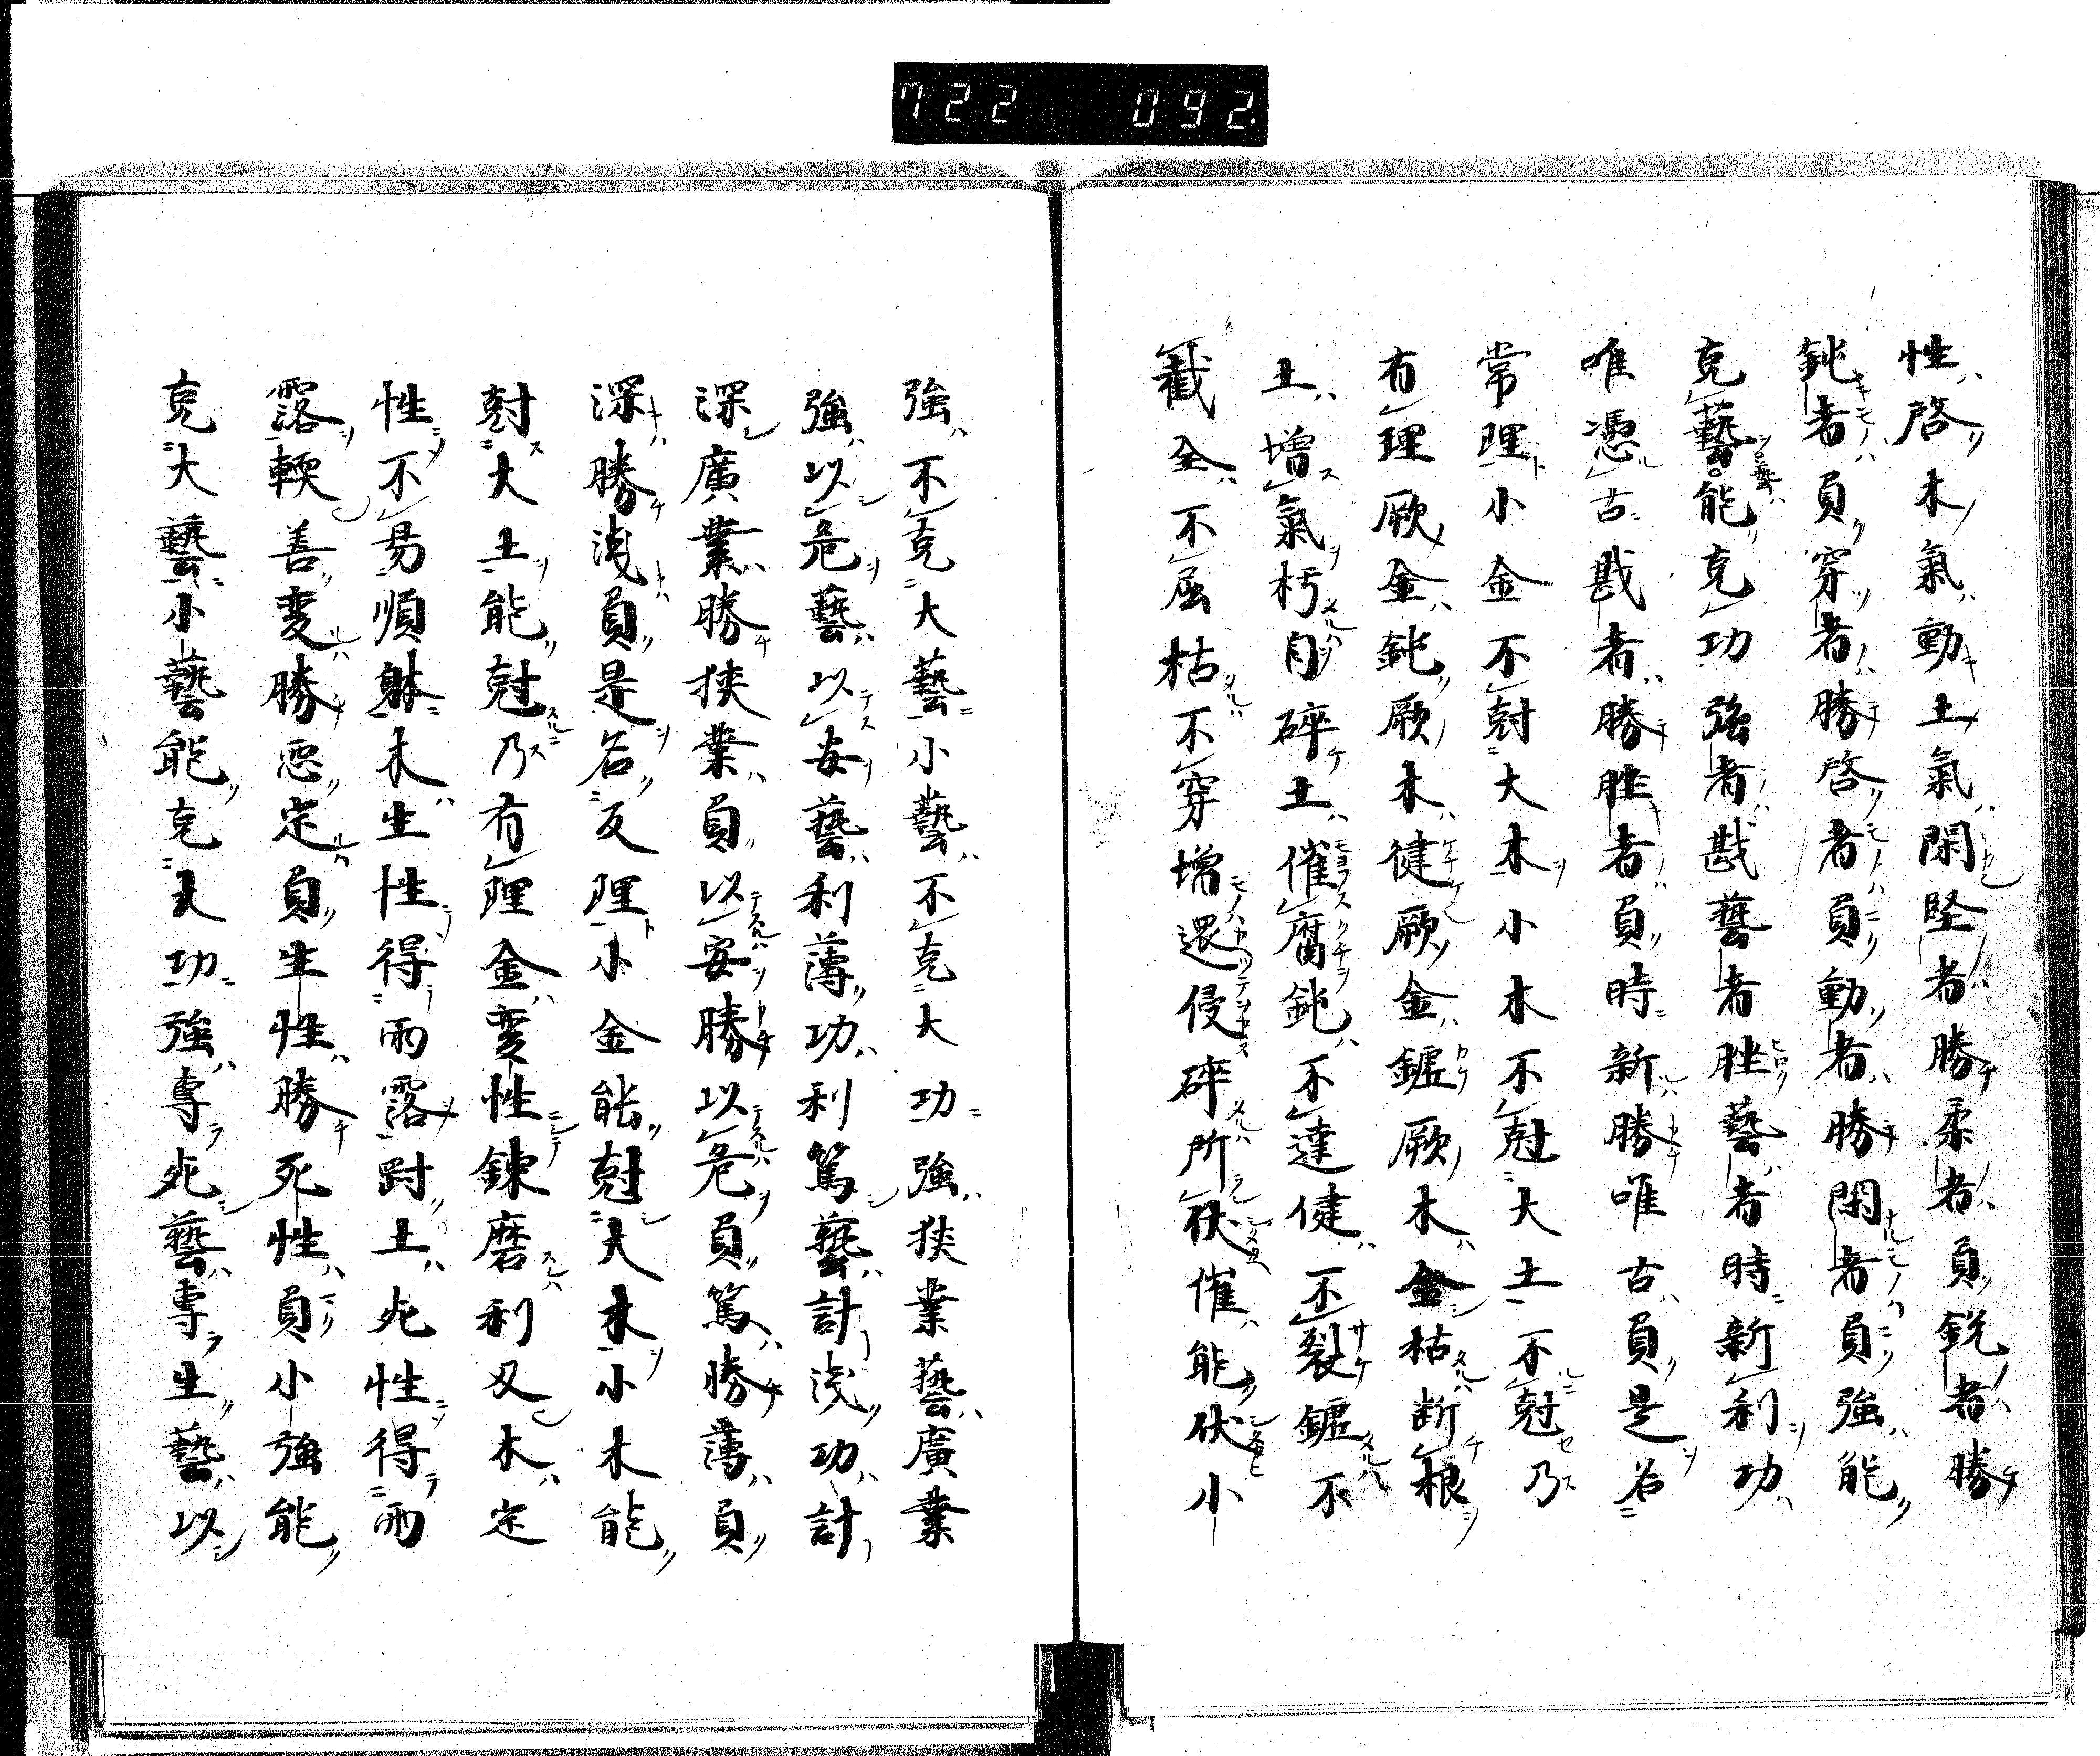 722 092.
性啓木氣動土氣閑堅者勝柔者負鋭者勝
鈍者負穿者勝啓者負動者勝閑者負強能
克藝能克功強者戡藝者胜藝者時新利功
唯憑古戡者勝胜者負時新勝唯古負是名
常理小金不尅大木小木不尅大土不尅乃
有理厥金鈍厥木健厥金鑢厥木金枯断根
土増氣朽自碎土催腐鈍不達健不裂鑢不
截全不屈枯不穿増還侵碎所伏催能伏小
強不克大藝小藝不克大功強狹業藝廣業
強以危藝以安藝利薄功利篤藝計淺功計
深廣業勝狹業負以安勝以危負篤勝薄負
深勝淺負是名反理小金能尅大木小木能
尅大土能尅乃有理金変性錬磨利又木定
性不易順躰木生性得雨露尌土死性得雨
露輭善変勝悪定負生性勝死性負小強能
克大藝小藝能克大功強専死藝専生藝以